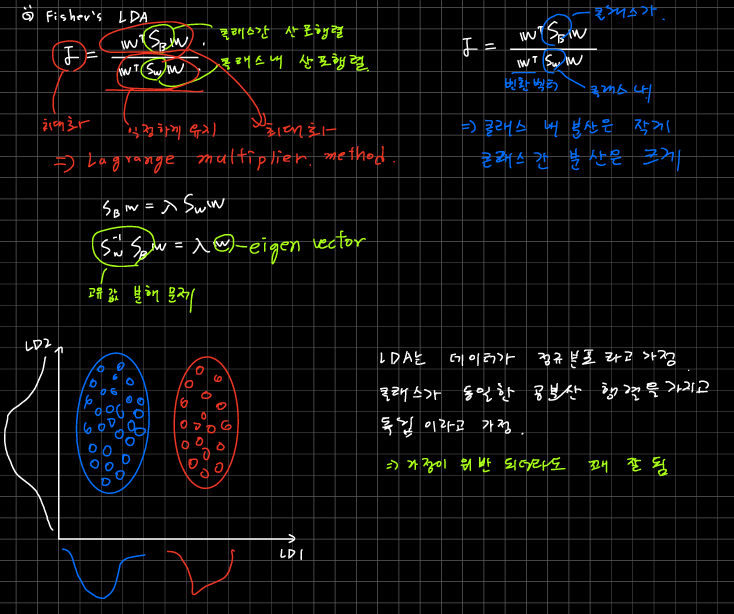 Fisher's LDA
J = wᵀ S_B w / wᵀ S_w w
클래스간 산포행렬
클래스내 산포행렬
최대화
일정하게 유지
최대화
=> Lagrange multiplier method.
S_B w = λ S_w w
S_w⁻¹ S_B w = λ w - eigen vector
고유값 분해 문제
J = wᵀ S_B w / wᵀ S_w w
클래스간
변환벡터
클래스 내
=> 클래스 내 분산은 작게
클래스 간 분산은 크게
LD2
LD1
LDA는 데이터가 정규분포 라고 가정
클래스가 동일한 공분산 행렬을 가지고
독립 이라고 가정.
=> 가정이 위반 되더라도 꽤 잘 됨